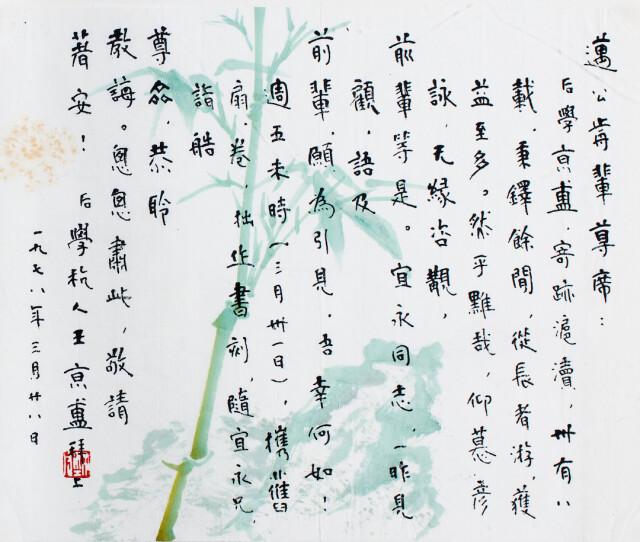 邁公前輩尊席：
后學京盦，寄跡滬瀆，卅有八
載，秉鐸餘閒，從長者游，獲
益至多。然乎難哉，仰慕彥
詠，无緣咨覯，
前輩等是。宜永同志，一昨見
顧，語及
前輩，願為引見，吾幸何如！
週五未時（三月卅一日），攜
扇、卷，拙作書刻，隨宜永兄，
詣
尊盫，恭聆
教誨。匆匆肅此，敬請
著安！ 后學杭人 京盦拜上
一九七八年三月廿八日